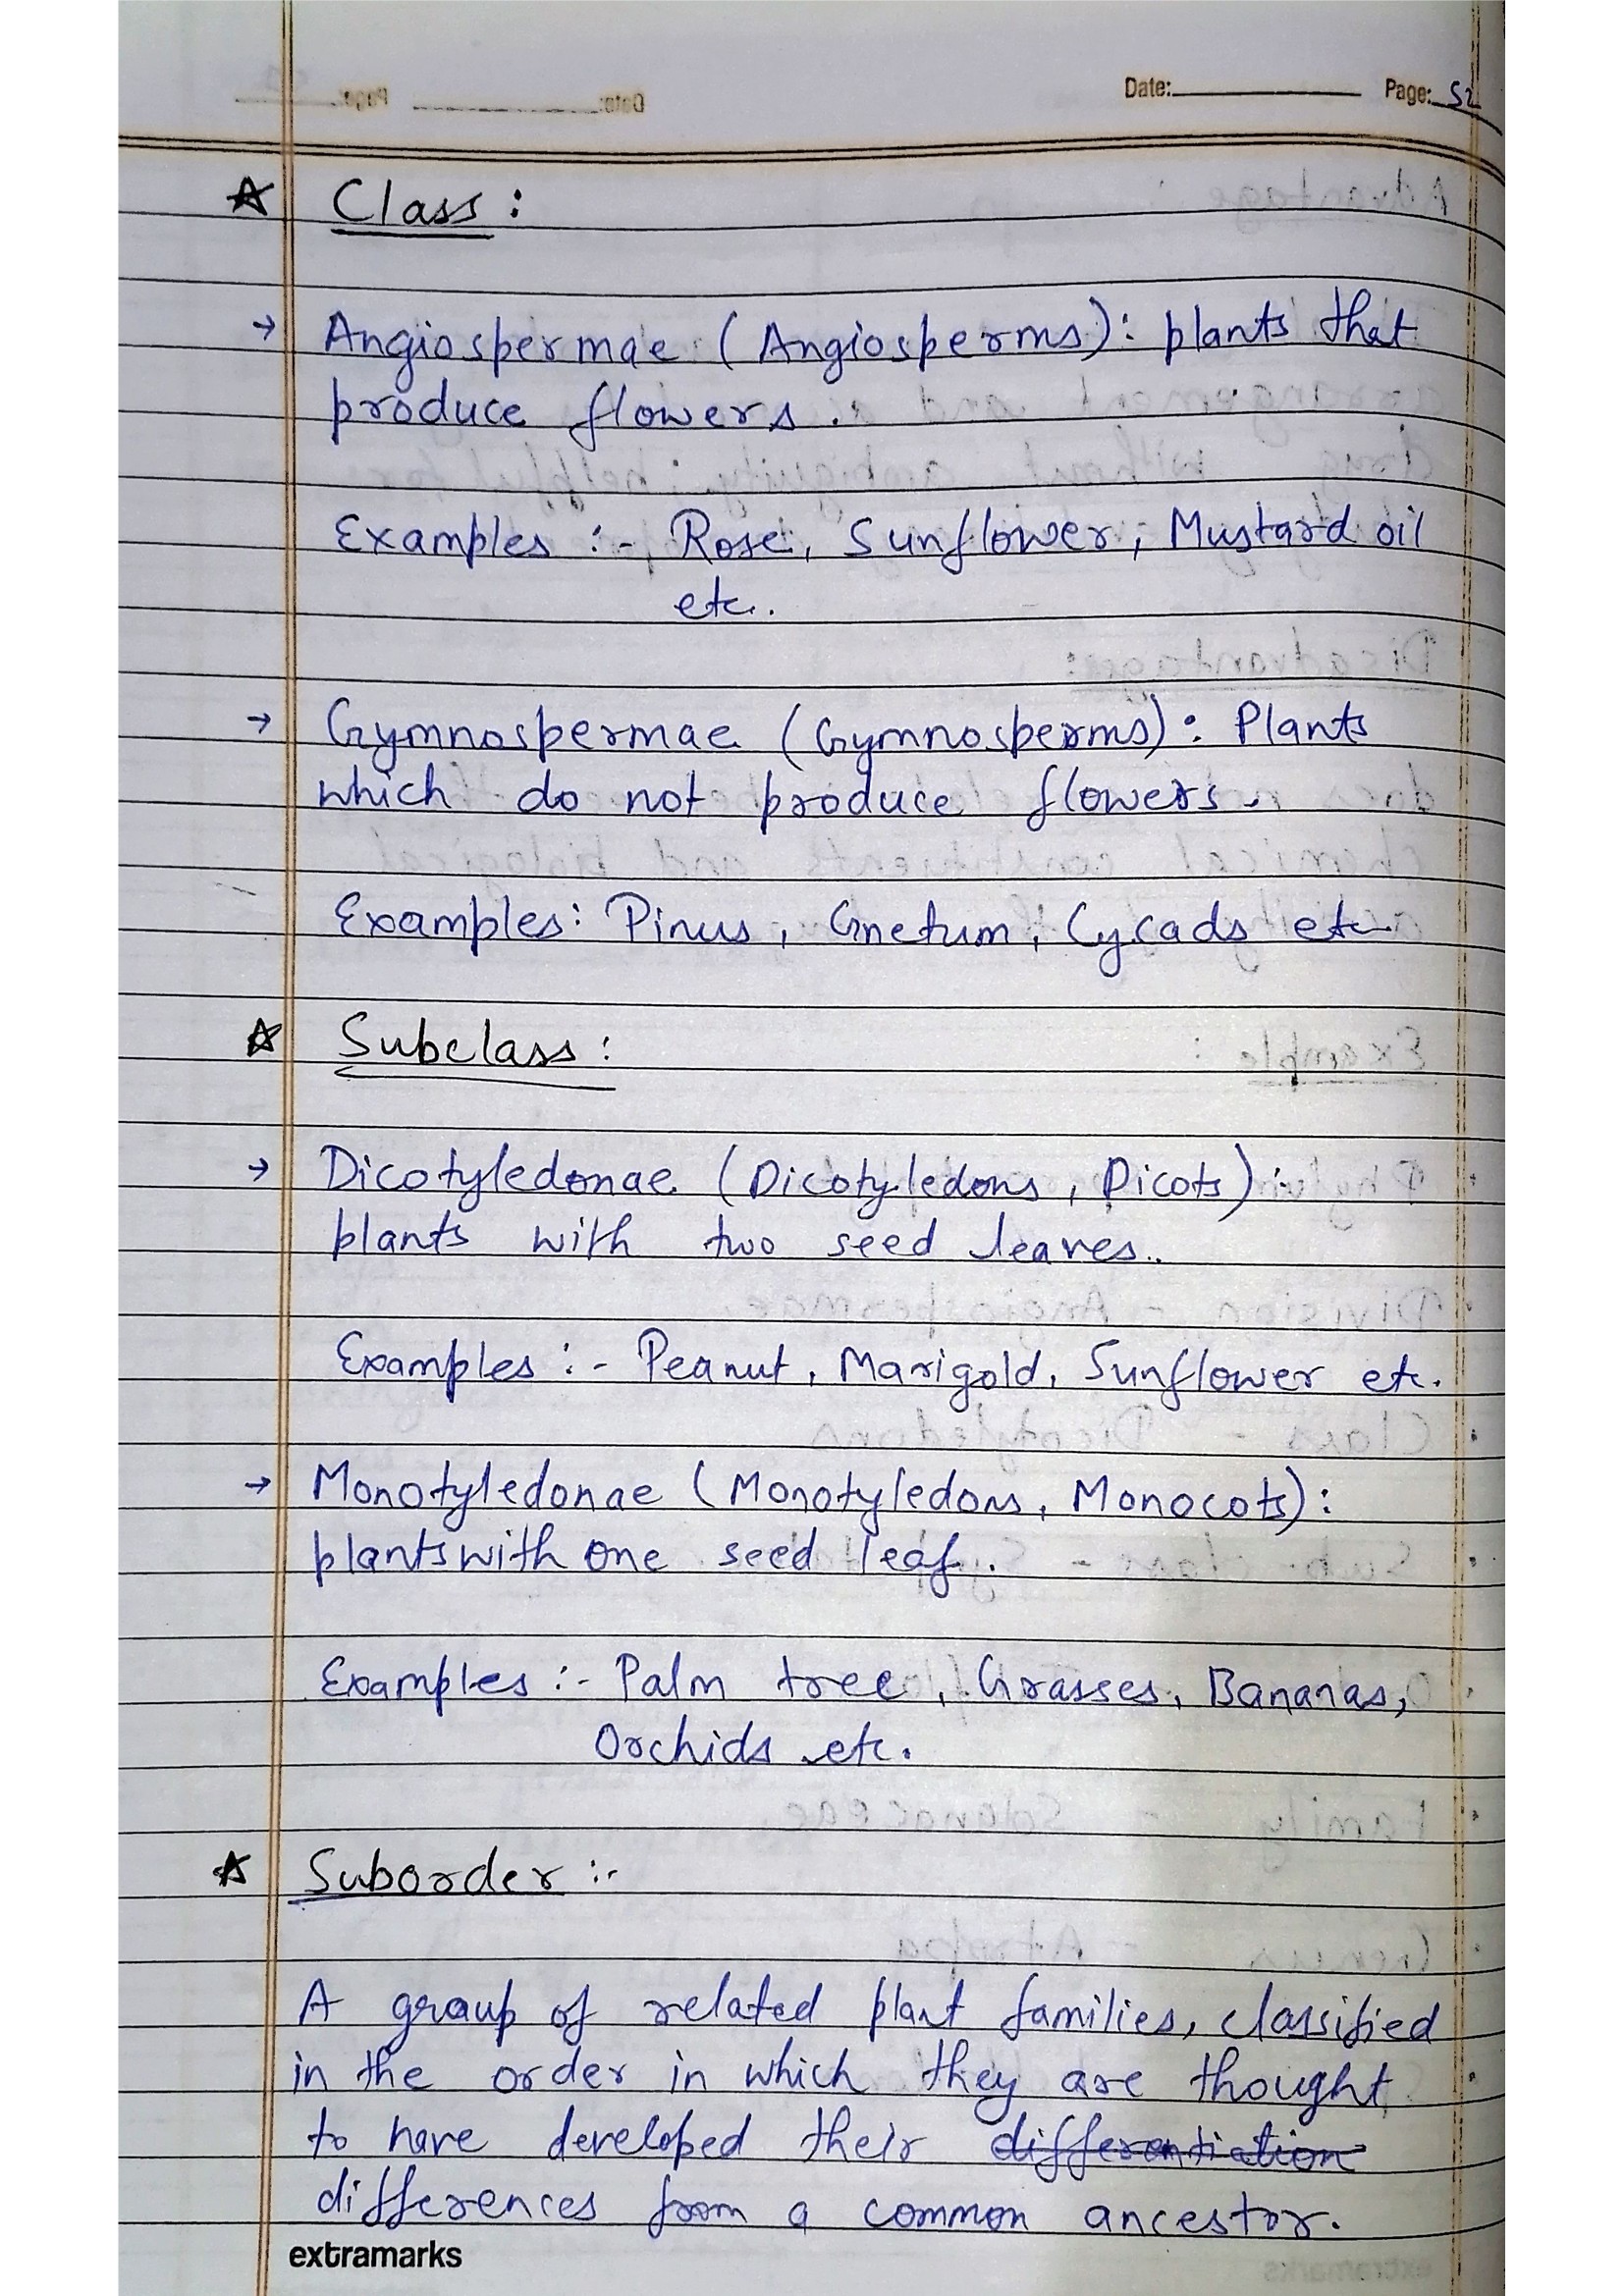 Date: Page: 52
Class :
→ Angiospermae (Angiosperms): plants that
produce flowers.
Examples :- Rose, Sunflower, Mustard oil
etc.
→ Gymnospermae (Gymnosperms): Plants
which do not produce flowers.
Examples: Pinus, Gnetum, Cycads etc
Subclass :
→ Dicotyledonae (Dicotyledons, Dicots) :-
plants with two seed leaves.
Examples :- Peanut, Marigold, Sunflower etc.
→ Monotyledonae (Monotyledons, Monocots):
plants with one seed leaf.
Examples :- Palm tree, Grasses, Bananas,
Orchids etc.
Suborder :-
A group of related plant families, classified
in the order in which they are thought
to have developed their differentiation
differences from a common ancestor.
extramarks